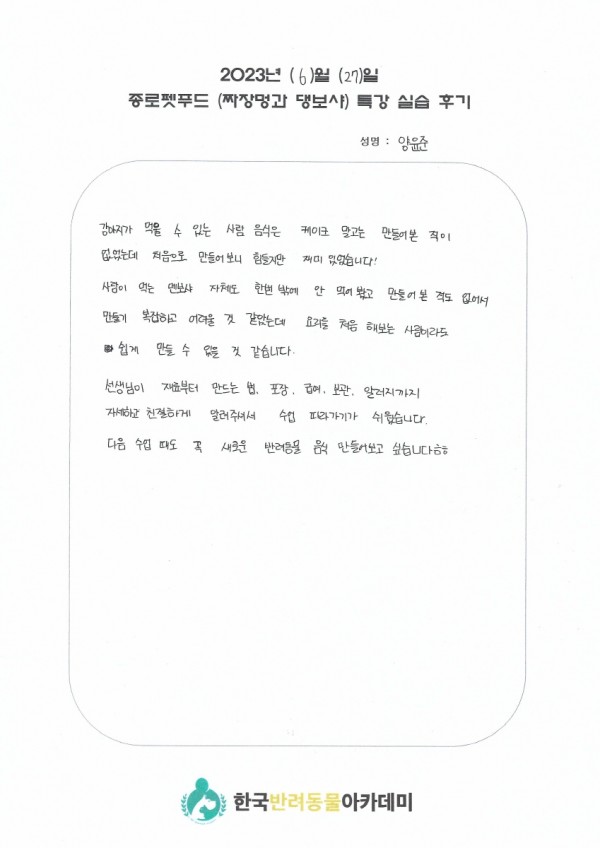 2023년 (6)월 (27)일
종로펫푸드 (짜장멍과 댕보샤) 특강 실습 후기
성명 : 양윤준
강아지가 먹을 수 있는 사람 음식은 케이크 말고는 만들어본 적이
없었는데 처음으로 만들어보니 힘들지만 재미있었습니다!
사람이 먹는 멘보샤 자체도 한번 밖에 안 먹어 봤고 만들어 본 적도 없어서
만들기 복잡하고 어려울 것 같았는데 요리를 처음 해보는 사람이라도
쉽게 만들 수 있을 것 같습니다.
선생님이 재료부터 만드는 법, 포장, 급여, 보관, 알러지까지
자세하고 친절하게 알려주셔서 수업 따라가기가 쉬웠습니다.
다음 수업 때도 꼭 새로운 반려동물 음식 만들어보고 싶습니다ㅎㅎ
한국반려동물아카데미